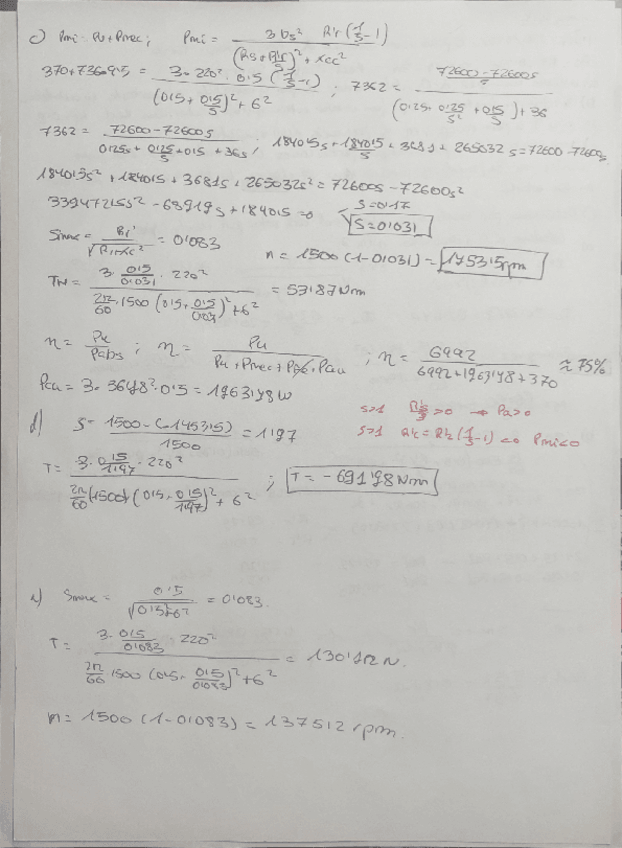 c) Pmi = Pu + Pmec ; Pmi = 3 Us² R'r (1/s - 1) / ((Rs + R'r/s)² + Xcc²)
370 + 736·9'5 = 3·220²·0'5 (1/s - 1) / ((0'5 + 0'5/s)² + 6²) ; 7362 = (72600/s - 72600s) / ((0'25 + 0'25/s² + 0'5/s) + 36)
7362 = (72600 - 72600s) / (0'25s + 0'25/s + 0'5 + 36s) ; 1840'5s + 1840'5/s + 3681 + 265032s = 72600 - 72600s
1840'5s² + 1840'5 + 3681s + 265032s² = 72600s - 72600s²
339472'5s² - 68919s + 1840'5 = 0 s = 0'17
s = 0'031
Smax = Rr' / √(R1² + Xcc²) = 0'083
n = 1500 (1 - 0'031) = 1453'5 rpm
TN = (3· 0'5/0'031 · 220²) / (2π/60 · 1500 (0'5 + 0'5/0'031)² + 6²) = 53'87 Nm
η = Pu/Pabs ; η = Pu / (Pu + Pmec + Pfe + Pcu) ; η = 6992 / (6992 + 1963'48 + 370) ≈ 75%
Pcu = 3·36'48²·0'5 = 1963'48 W
s>1 R'r/s >0 → Pa>0
d) s = (1500 - (-1453'5)) / 1500 = 1'97
s>1 R'c = R'r (1/s - 1) <0 Pmi<0
T = (3· 0'5/1'97 · 220²) / (2π/60 (1500) (0'5 + 0'5/1'97)² + 6²) ; T = -6'9198 Nm
e) Smax = 0'5 / √(0'5² + 6²) = 0'083
T = (3· 0'5/0'083 · 220²) / (2π/60 · 1500 (0'5 + 0'5/0'083)² + 6²) = 130'12 N.
n = 1500 (1 - 0'083) = 1375'12 rpm.